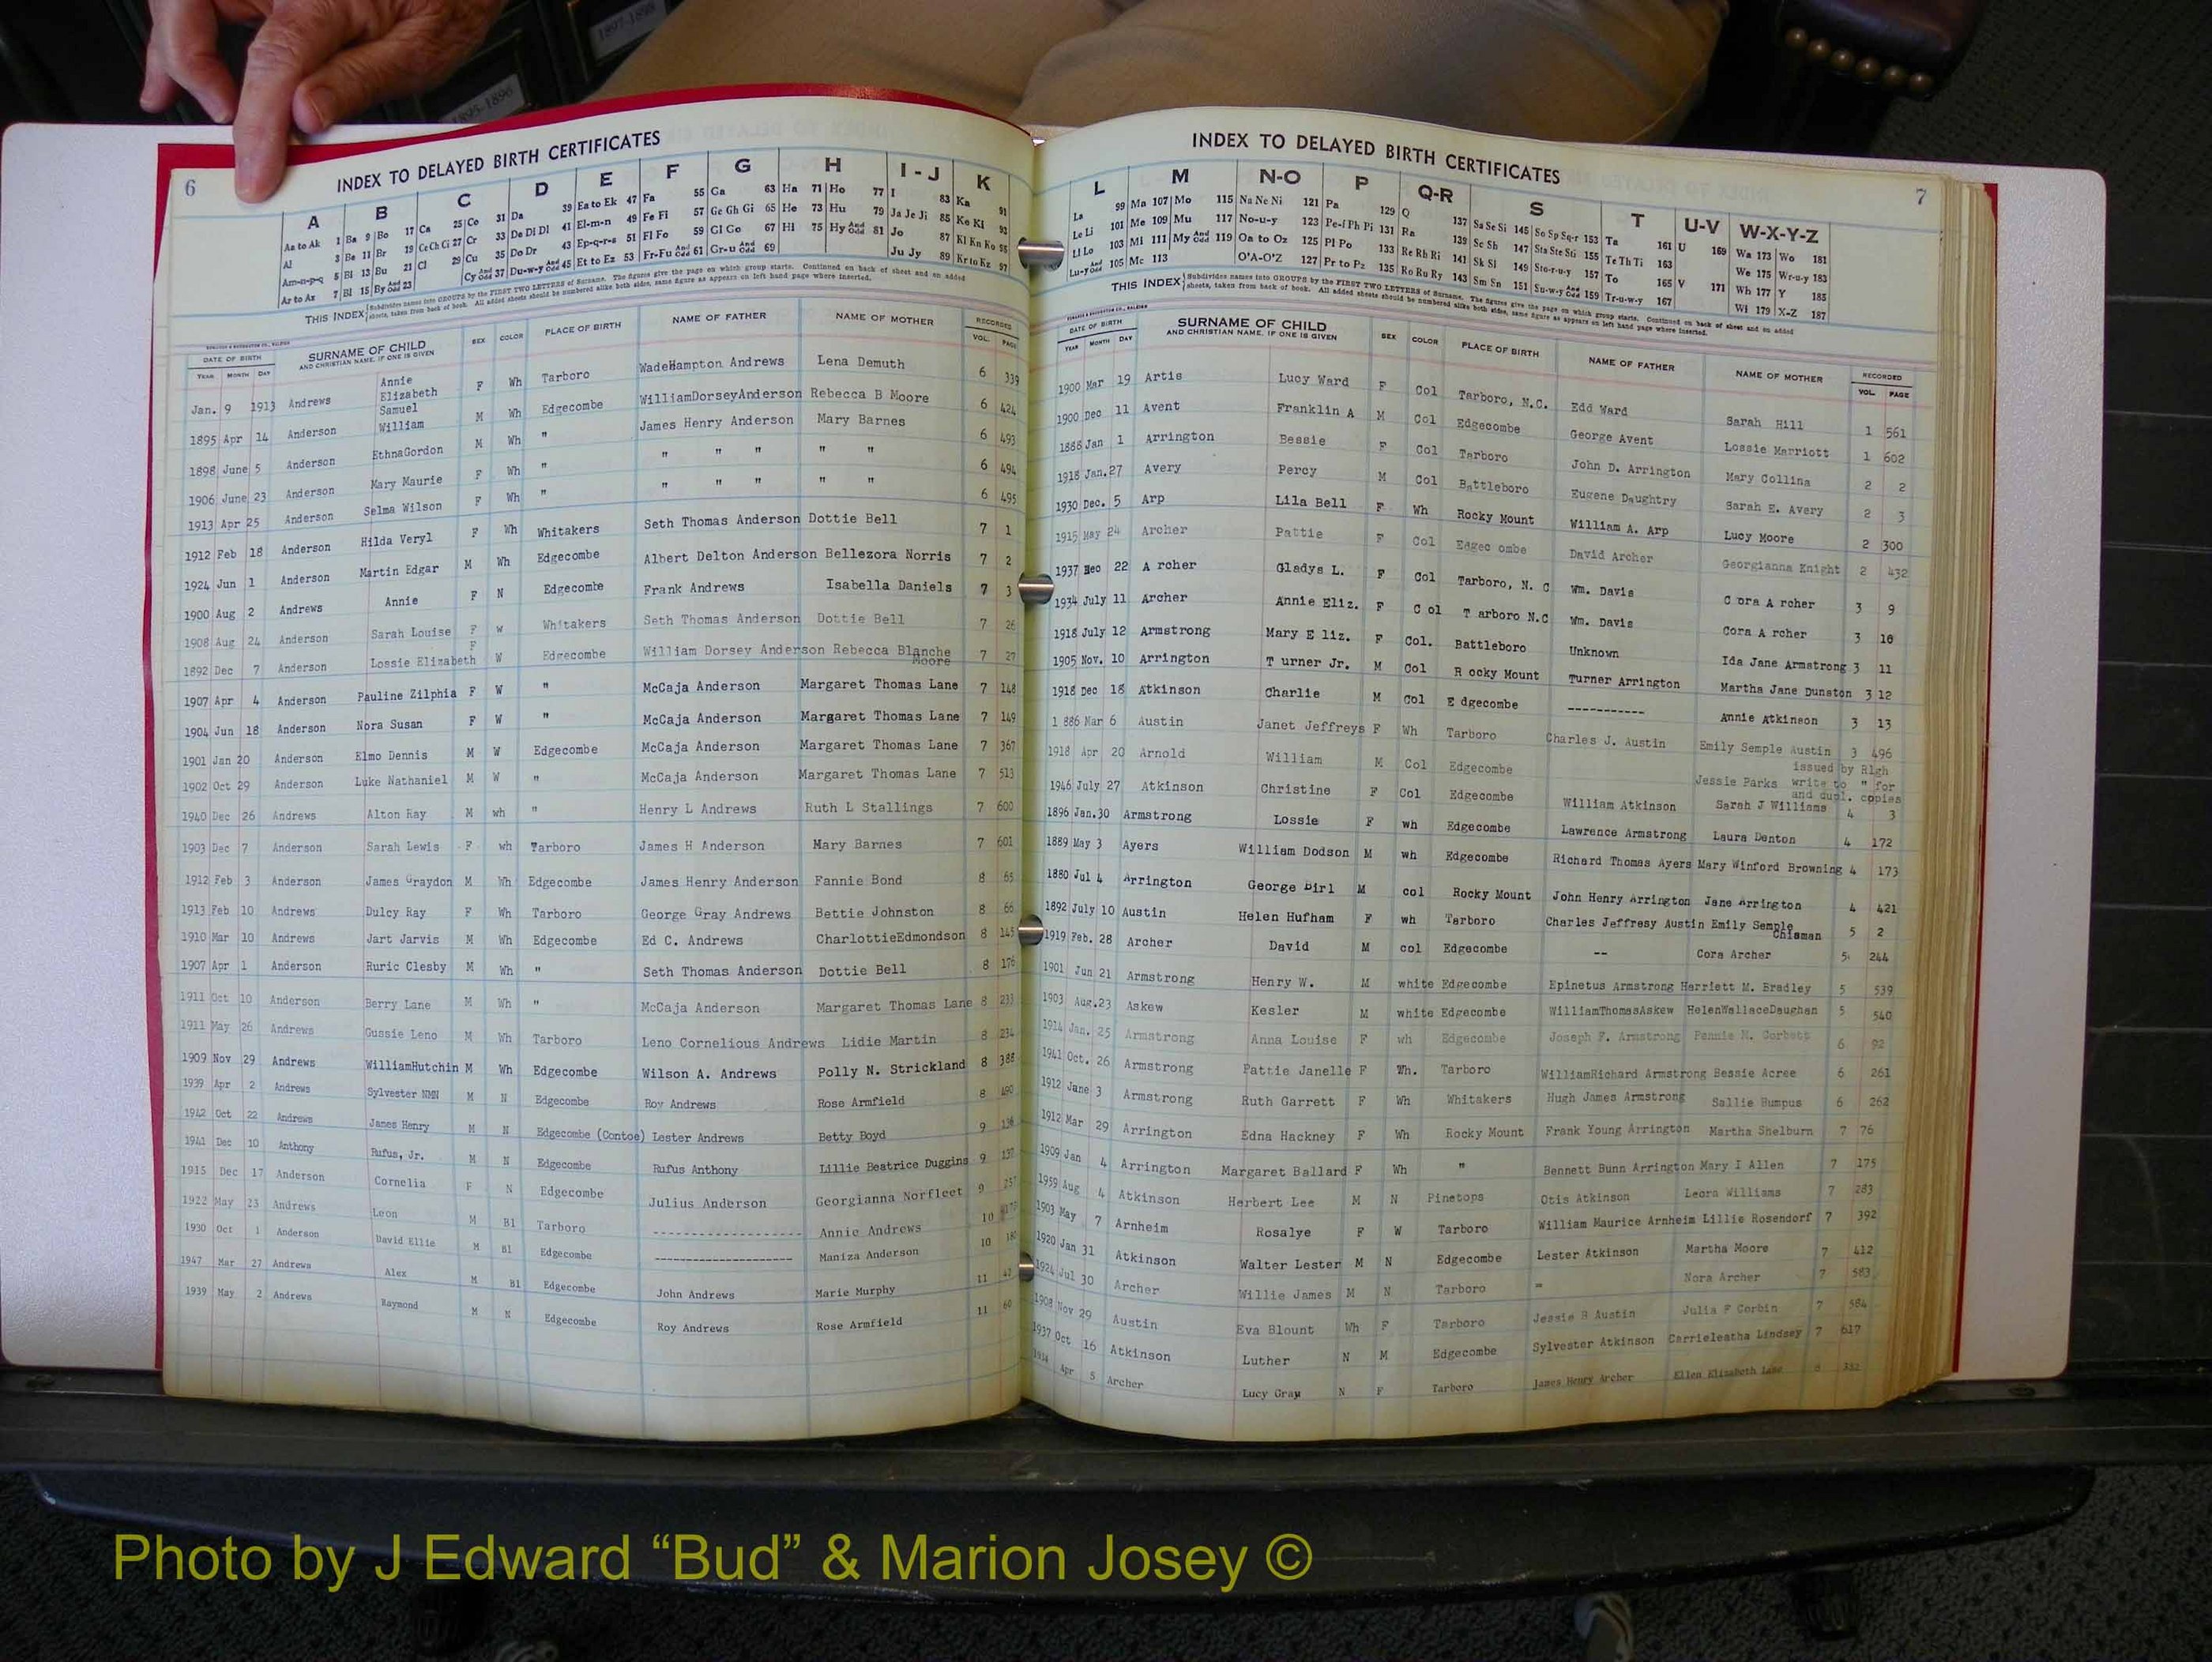 1897-1898
1895-1896
6
INDEX TO DELAYED BIRTH CERTIFICATES
A B C D E F G H I-J K
Aa to Ak 1 Ba 9 Bo 17 Ca 25 Co 31 Da 39 Ea to Ek 47 Fa 55 Ga 63 Ha 71 Ho 77 I 83 Ka 91
Al 3 Be 11 Br 19 Ce Ch Ci 27 Cr 33 De Di Dl 41 El-m-n 49 Fe Fi 57 Ge Gh Gi 65 He 73 Hu 79 Ja Je Ji 85 Ke Ki 93
Am-n-p-q 5 Bi 13 Bu 21 Cl 29 Cu 35 Do Dr 43 Ep-q-r-s 51 Fl Fo 59 Gl Go 67 Hi 75 Hy And Odd 81 Jo 87 Kl Kn Ko 95
Ar to Az 7 Bl 15 By And Odd 23 Cy And Odd 37 Du-w-y And Odd 45 Et to Ez 53 Fr-Fu And Odd 61 Gr-u And Odd 69 Ju Jy 89 Kr to Kz 97
THIS INDEX Subdivides names into GROUPS by the FIRST TWO LETTERS of Surname. The figures give the page on which group starts. Continued on back of sheet and on added
sheets, taken from back of book. All added sheets should be numbered alike both sides, same figure as appears on left hand page where inserted.
DATE OF BIRTH SURNAME OF CHILD SEX COLOR PLACE OF BIRTH NAME OF FATHER NAME OF MOTHER RECORDED
YEAR MONTH DAY AND CHRISTIAN NAME, IF ONE IS GIVEN VOL. PAGE
Jan. 9 1913 Andrews Annie Elizabeth F Wh Tarboro WadeHampton Andrews Lena Demuth 6 339
1895 Apr 14 Anderson Samuel William M Wh Edgecombe WilliamDorseyAnderson Rebecca B Moore 6 424
1898 June 5 Anderson EthnaGordon M Wh " James Henry Anderson Mary Barnes 6 493
1906 June 23 Anderson Mary Maurie F Wh " " " " " " 6 494
1913 Apr 25 Anderson Selma Wilson F Wh " " " " " " 6 495
1912 Feb 18 Anderson Hilda Veryl F Wh Whitakers Seth Thomas Anderson Dottie Bell 7 1
1924 Jun 1 Anderson Martin Edgar M Wh Edgecombe Albert Delton Anderson Bellezora Norris 7 2
1900 Aug 2 Andrews Annie F N Edgecombe Frank Andrews Isabella Daniels 7 3
1908 Aug 24 Anderson Sarah Louise F W Whitakers Seth Thomas Anderson Dottie Bell 7 26
1892 Dec 7 Anderson Lossie Elizabeth F W Edgecombe William Dorsey Anderson Rebecca Blanche Moore 7 27
1907 Apr 4 Anderson Pauline Zilphia F W " McCaja Anderson Margaret Thomas Lane 7 148
1904 Jun 18 Anderson Nora Susan F W " McCaja Anderson Margaret Thomas Lane 7 149
1901 Jan 20 Anderson Elmo Dennis M W Edgecombe McCaja Anderson Margaret Thomas Lane 7 367
1902 Oct 29 Anderson Luke Nathaniel M W " McCaja Anderson Margaret Thomas Lane 7 513
1940 Dec 26 Andrews Alton Ray M wh " Henry L Andrews Ruth L Stallings 7 600
1903 Dec 7 Anderson Sarah Lewis F wh Tarboro James H Anderson Mary Barnes 7 601
1912 Feb 3 Anderson James Graydon M Wh Edgecombe James Henry Anderson Fannie Bond 8 65
1913 Feb 10 Andrews Dulcy Ray F Wh Tarboro George Gray Andrews Bettie Johnston 8 66
1910 Mar 10 Andrews Jart Jarvis M Wh Edgecombe Ed C. Andrews CharlottieEdmondson 8 145
1907 Apr 1 Anderson Ruric Clesby M Wh " Seth Thomas Anderson Dottie Bell 8 176
1911 Oct 10 Anderson Berry Lane M Wh " McCaja Anderson Margaret Thomas Lane 8 233
1911 May 26 Andrews Gussie Leno M Wh Tarboro Leno Cornelious Andrews Lidie Martin 8 234
1909 Nov 29 Andrews WilliamHutchin M Wh Edgecombe Wilson A. Andrews Polly N. Strickland 8 388
1939 Apr 2 Andrews Sylvester NMN M N Edgecombe Roy Andrews Rose Armfield 8 490
1942 Oct 22 Andrews James Henry M N Edgecombe (Contoe) Lester Andrews Betty Boyd 9 136
1941 Dec 10 Anthony Rufus, Jr. M N Edgecombe Rufus Anthony Lillie Beatrice Duggins 9 137
1915 Dec 17 Anderson Cornelia F N Edgecombe Julius Anderson Georgianna Norfleet 9 257
1922 May 23 Andrews Leon M Bl Tarboro ---------------- Annie Andrews 10
1930 Oct 1 Anderson David Ellie M Bl Edgecombe ------------------ Maniza Anderson 10 180
1947 Mar 27 Andrews Alex M Bl Edgecombe John Andrews Marie Murphy 11
1939 May 2 Andrews Raymond M N Edgecombe Roy Andrews Rose Armfield 11 60
INDEX TO DELAYED BIRTH CERTIFICATES
7
L M N-O P Q-R S T U-V W-X-Y-Z
La 99 Ma 107 Mo 115 Na Ne Ni 121 Pa 129 Q 137 Sa Se Si 145 So Sp Sq-r 153 Ta 161 U 169 Wa 173 Wo 181
Le Li 101 Me 109 Mu 117 No-u-y 123 Pe-i Ph Pi 131 Ra 139 Sc Sh 147 Sta Ste Sti 155 Te Th Ti 163 We 175 Wr-u-y 183
Ll Lo 103 Mi 111 My And Odd 119 Oa to Oz 125 Pl Po 133 Re Rh Ri 141 Sk Sl 149 Sto-r-u-y 157 To 165 V 171 Wh 177 Y 185
Lu-y And Odd 105 Mc 113 O'A-O'Z 127 Pr to Pz 135 Ro Ru Ry 143 Sm Sn 151 Su-w-y And Odd 159 Tr-u-w-y 167 Wi 179 X-Z 187
THIS INDEX Subdivides names into GROUPS by the FIRST TWO LETTERS of Surname. The figures give the page on which group starts. Continued on back of sheet and on added
sheets, taken from back of book. All added sheets should be numbered alike both sides, same figure as appears on left hand page where inserted.
DATE OF BIRTH SURNAME OF CHILD SEX COLOR PLACE OF BIRTH NAME OF FATHER NAME OF MOTHER RECORDED
YEAR MONTH DAY AND CHRISTIAN NAME, IF ONE IS GIVEN VOL. PAGE
1900 Mar 19 Artis Lucy Ward F Col Tarboro, N.C. Edd Ward Sarah Hill 1 561
1900 Dec 11 Avent Franklin A M Col Edgecombe George Avent Lossie Marriott 1 602
1888 Jan 1 Arrington Bessie F Col Tarboro John D. Arrington Mary Collins 2 2
1918 Jan. 27 Avery Percy M Col Battleboro Eugene Daughtry Sarah E. Avery 2 3
1930 Dec. 5 Arp Lila Bell F Wh Rocky Mount William A. Arp Lucy Moore 2 300
1915 May 24 Archer Pattie F Col Edgec ombe David Archer Georgianna Knight 2 432
1937 Dec 22 A rcher Gladys L. F Col Tarboro, N. C Wm. Davis C ora A rcher 3 9
1934 July 11 Archer Annie Eliz. F C ol T arboro N.C Wm. Davis Cora A rcher 3 10
1918 July 12 Armstrong Mary E liz. F Col. Battleboro Unknown Ida Jane Armstrong 3 11
1905 Nov. 10 Arrington T urner Jr. M Col R ocky Mount Turner Arrington Martha Jane Dunston 3 12
1918 Dec 18 Atkinson Charlie M Col E dgecombe ----------- Annie Atkinson 3 13
1 886 Mar 6 Austin Janet Jeffreys F Wh Tarboro Charles J. Austin Emily Semple Austin 3 496
1918 Apr 20 Arnold William M Col Edgecombe Jessie Parks issued by Rlgh write to " for and dupl. copies
1946 July 27 Atkinson Christine F Col Edgecombe William Atkinson Sarah J Williams 4 3
1896 Jan. 30 Armstrong Lossie F wh Edgecombe Lawrence Armstrong Laura Denton 4 172
1889 May 3 Ayers William Dodson M wh Edgecombe Richard Thomas Ayers Mary Winford Browning 4 173
1880 Jul 4 Arrington George Birl M col Rocky Mount John Henry Arrington Jane Arrington 4 421
1892 July 10 Austin Helen Hufham F wh Tarboro Charles Jeffresy Austin Emily Semple Chisman 5 2
1919 Feb. 28 Archer David M col Edgecombe -- Cora Archer 5 244
1901 Jun 21 Armstrong Henry W. M white Edgecombe Epinetus Armstrong Harriett M. Bradley 5 539
1903 Aug. 23 Askew Kesler M white Edgecombe WilliamThomasAskew HelenWallaceDaughan 5 540
1914 Jan. 25 Armstrong Anna Louise F wh Edgecombe Joseph F. Armstrong Pennie M. Corbett 6 92
1941 Oct. 26 Armstrong Pattie Janelle F Wh. Tarboro WilliamRichard Armstrong Bessie Acree 6 261
1912 Jane 3 Armstrong Ruth Garrett F Wh Whitakers Hugh James Armstrong Sallie Bumpus 6 262
1912 Mar 29 Arrington Edna Hackney F Wh Rocky Mount Frank Young Arrington Martha Shelburn 7 76
1909 Jan 4 Arrington Margaret Ballard F Wh " Bennett Bunn Arrington Mary I Allen 7 175
1959 Aug 4 Atkinson Herbert Lee M N Pinetops Otis Atkinson Leora Williams 7 283
1903 May 7 Arnheim Rosalye F W Tarboro William Maurice Arnheim Lillie Rosendorf 7 392
1920 Jan 31 Atkinson Walter Lester M N Edgecombe Lester Atkinson Martha Moore 7 412
1924 Jul 30 Archer Willie James M N Tarboro = Nora Archer 7 583
1908 Nov 29 Austin Eva Blount Wh F Tarboro Jessie B Austin Julia F Corbin 7 584
1937 Oct 16 Atkinson Luther N M Edgecombe Sylvester Atkinson Carrieleatha Lindsey 7 617
1914 Apr 5 Archer Lucy Gray N F Tarboro James Henry Archer Ellen Elizabeth Lane 8 332
Photo by J Edward “Bud” & Marion Josey ©